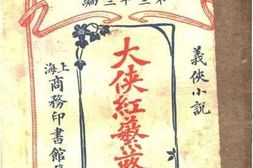 第三十三編
義俠小說
大俠紅蘩蕗
上海商務印書館